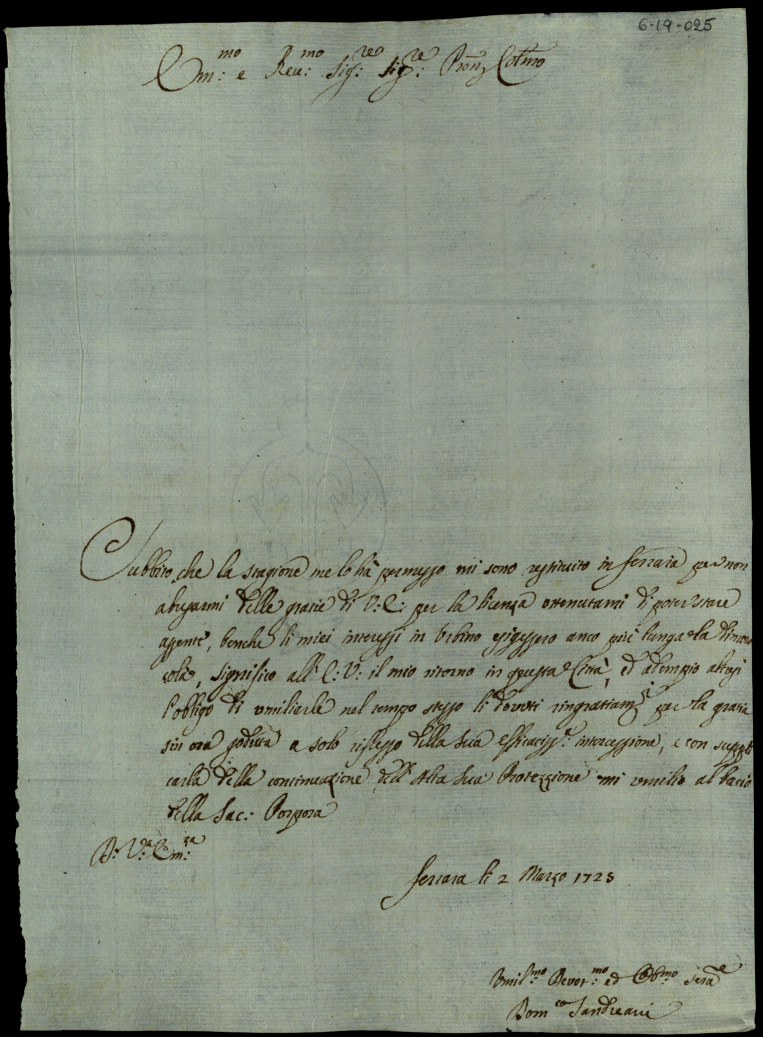 6-19-025
Em:mo e Reu:mo Sig:re Sig:re Pron Colmo
Subbito, che la stagione me lo hà permesso mi sono restituito in Ferrara per non
abusarmi delle gratie di V: E: per la licenza ottenutami di poter stare
assente, benche li miei interessi in Urbino esigessero anco più lunga la dimora
colà, significo all' E: V: il mio ritorno in questa Città, ed adempio altresì
l'obligo di umiliarle nel tempo stesso li dovuti ringratiam:ti per la gratia
sin ora goduta a solo riflesso della Sua efficaciss:a intercessione, e con suppli
carla della continuazione dell' Alta Sua Protezzione mi umilio al bacio
della Sac: Porpora
D: V:a Em:za
Ferrara li 2 Marzo 1725
Umil:mo Devot:mo ed Obb:mo Ser:e
Dom:co Sandreani